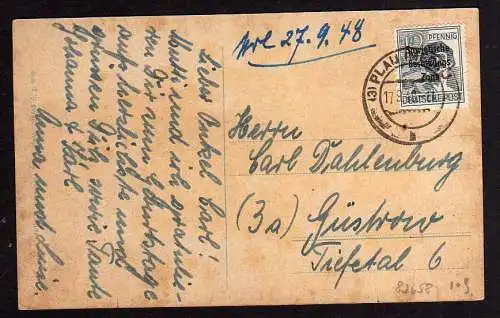 Lieber Onkel Carl!
Mutti und ich gratulie-
ren Dir zum Geburtstage
aufs herzlichste und
grüssen Dich sowie Tante
Johanna u. Karl
Anna und Luise.
Arl 27.9.48
PFENNIG
Sowjetische
Besatzungs
Zone
DEUTSCHE POST
(3) PLAU
17.9.
Herrn
Carl Dahlenburg
(3a) Güstrow
Tiefetal 6
82658